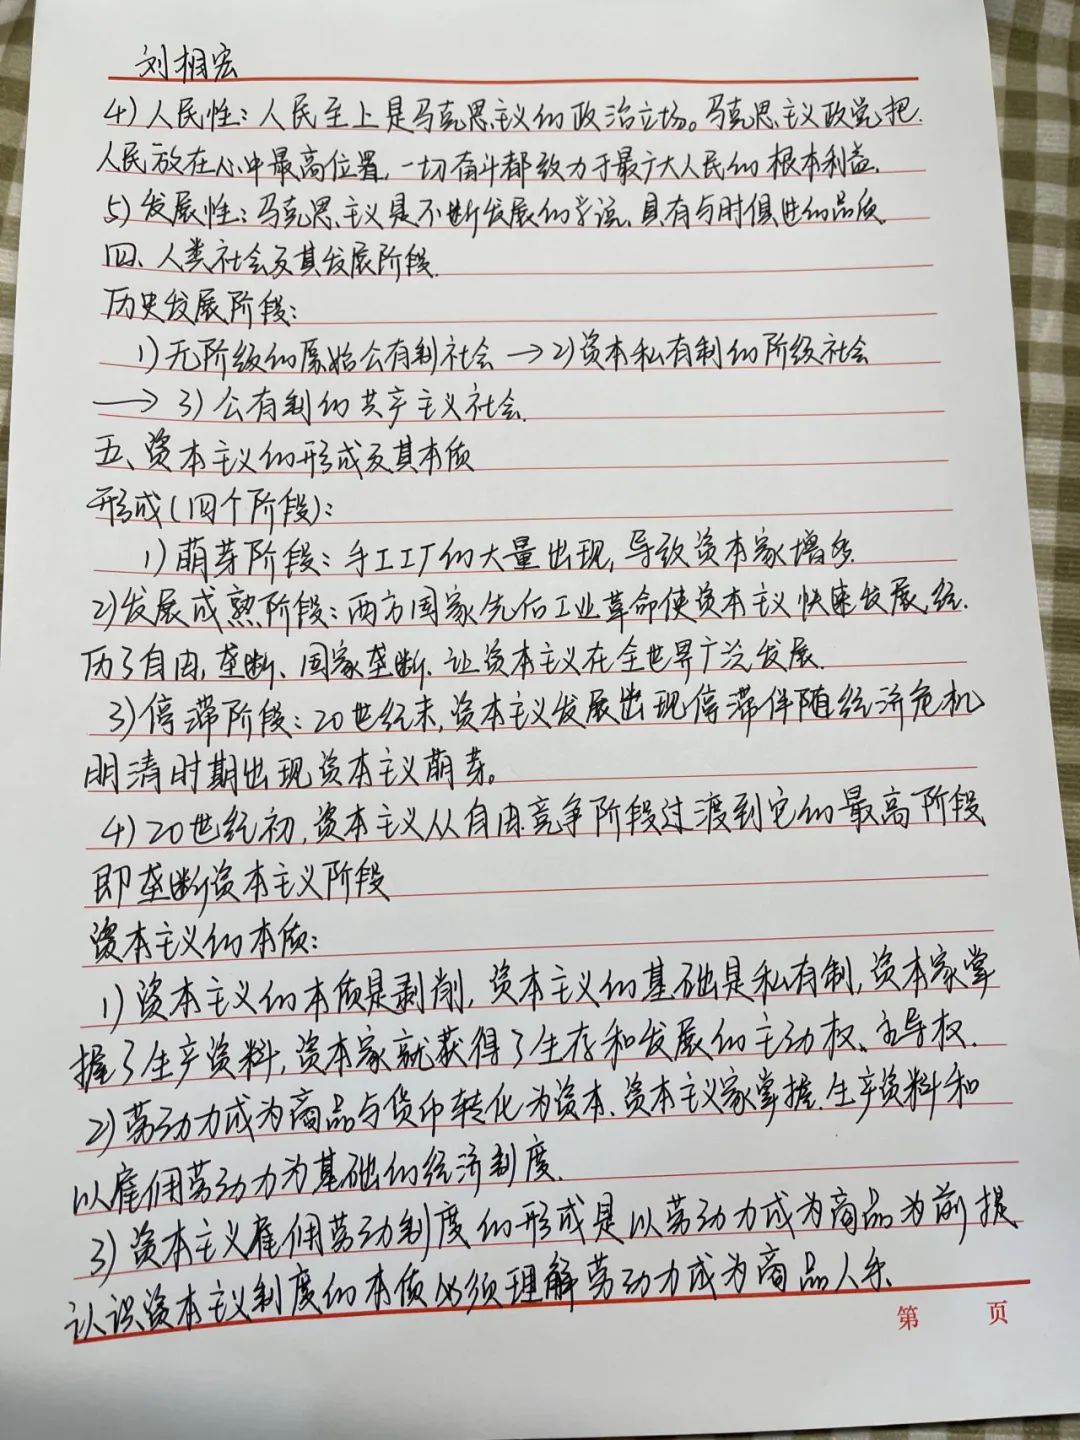 刘相宏
4）人民性：人民至上是马克思主义的政治立场。马克思主义政党把
人民放在心中最高位置，一切奋斗都致力于最广大人民的根本利益.
5）发展性：马克思主义是不断发展的学说、具有与时俱进的品质
四、人类社会及其发展阶段.
历史发展阶段：
1）无阶级的原始公有制社会 → 2）资本私有制的阶级社会
→ 3）公有制的共产主义社会.
五、资本主义的形成及其本质
形成（四个阶段）：
1）萌芽阶段：手工工厂的大量出现，导致资本家增多.
2）发展成熟阶段：西方国家先后工业革命使资本主义快速发展，经
历了自由，垄断、国家垄断、让资本主义在全世界广泛发展.
3）停滞阶段：20世纪末，资本主义发展出现停滞伴随经济危机
明清时期出现资本主义萌芽。
4）20世纪初，资本主义从自由竞争阶段过渡到它的最高阶段
即垄断资本主义阶段
资本主义的本质：
1）资本主义的本质是剥削，资本主义的基础是私有制，资本家掌
握了生产资料，资本家就获得了生存和发展的主动权、主导权.
2）劳动力成为商品与货币转化为资本、资本主义家掌握、生产资料和
以雇佣劳动力为基础的经济制度.
3）资本主义雇佣劳动制度的形成是以劳动力成为商品为前提
认识资本主义制度的本质必须理解劳动力成为商品人手.
第 页